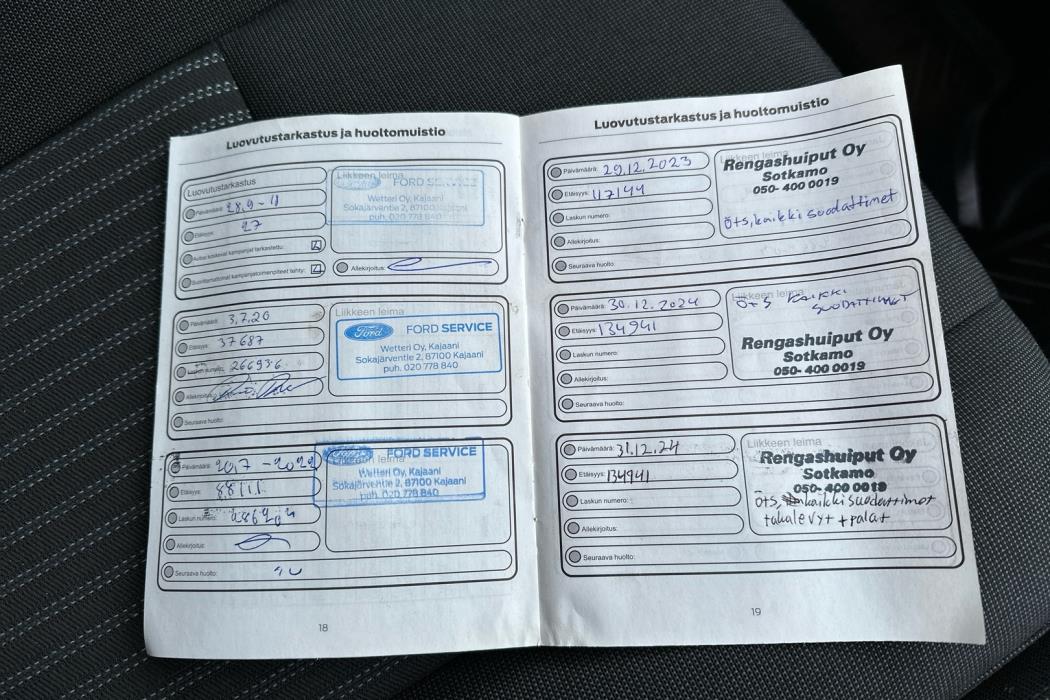 Luovutustarkastus ja huoltomuistio
Luovutustarkastus
Päivämäärä: 28.9 - 11
Etäisyys: 27
tarkastettu:
kampanjatoimenpiteet tehty:
Liikkeen leima
FORD SERVICE
Wetteri Oy, Kajaani
Sokajärventie 2, 87100 Kajaani
puh. 020 778 840
Allekirjoitus:
Päivämäärä: 3.7.20
Etäisyys: 37687
Laskun numero: 266936
Allekirjoitus:
Seuraava huolto:
Liikkeen leima
Ford FORD SERVICE
Wetteri Oy, Kajaani
Sokajärventie 2, 87100 Kajaani
puh. 020 778 840
Päivämäärä: 20.7 - 2022
Etäisyys:
Laskun numero:
Allekirjoitus:
Seuraava huolto:
Liikkeen leima
Ford FORD SERVICE
Wetteri Oy, Kajaani
Sokajärventie 2, 87100 Kajaani
puh. 020 778 840
18
Luovutustarkastus ja huoltomuistio
Päivämäärä: 29.12.2023
Etäisyys: 117144
Laskun numero:
Allekirjoitus:
Seuraava huolto:
Liikkeen leima
Rengashuiput Oy
Sotkamo
050- 400 0019
öts, kaikki suodattimet
Päivämäärä: 30.12.2024
Etäisyys: 134941
Laskun numero:
Allekirjoitus:
Seuraava huolto:
Liikkeen leima
öts KAIKKI
SUODATTIMET
Rengashuiput Oy
Sotkamo
050- 400 0019
Päivämäärä: 31.12.24
Etäisyys: 134941
Laskun numero:
Allekirjoitus:
Seuraava huolto:
Liikkeen leima
Rengashuiput Oy
Sotkamo
050- 400 0019
öts, kaikki suodattimet
takalevyt + palat
19